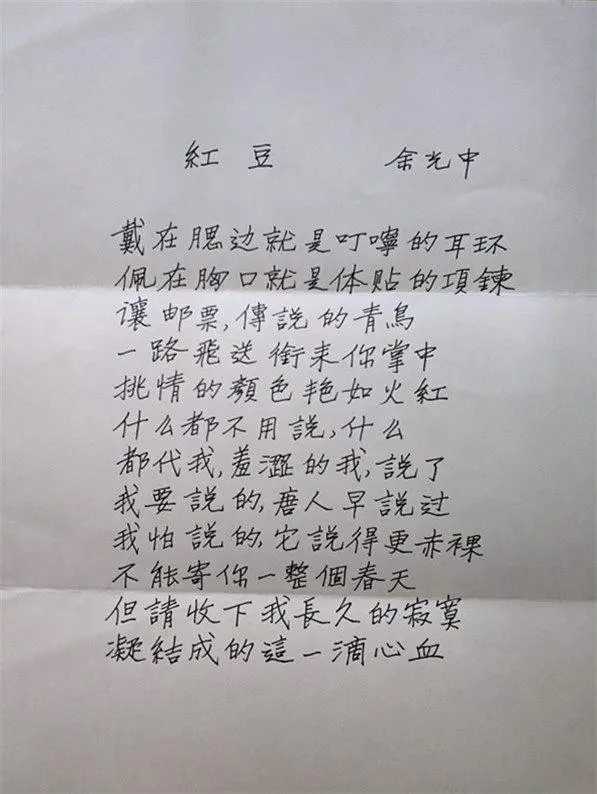 紅豆 余光中
戴在腮边就是叮嚀的耳环
佩在胸口就是体贴的項鍊
让邮票,傳説的青鳥
一路飛送銜来你掌中
挑情的顏色艳如火紅
什么都不用説,什么
都代我,羞澀的我,説了
我要説的,唐人早説过
我怕説的,它説得更赤裸
不能寄你一整個春天
但請收下我長久的寂寞
凝結成的這一滴心血